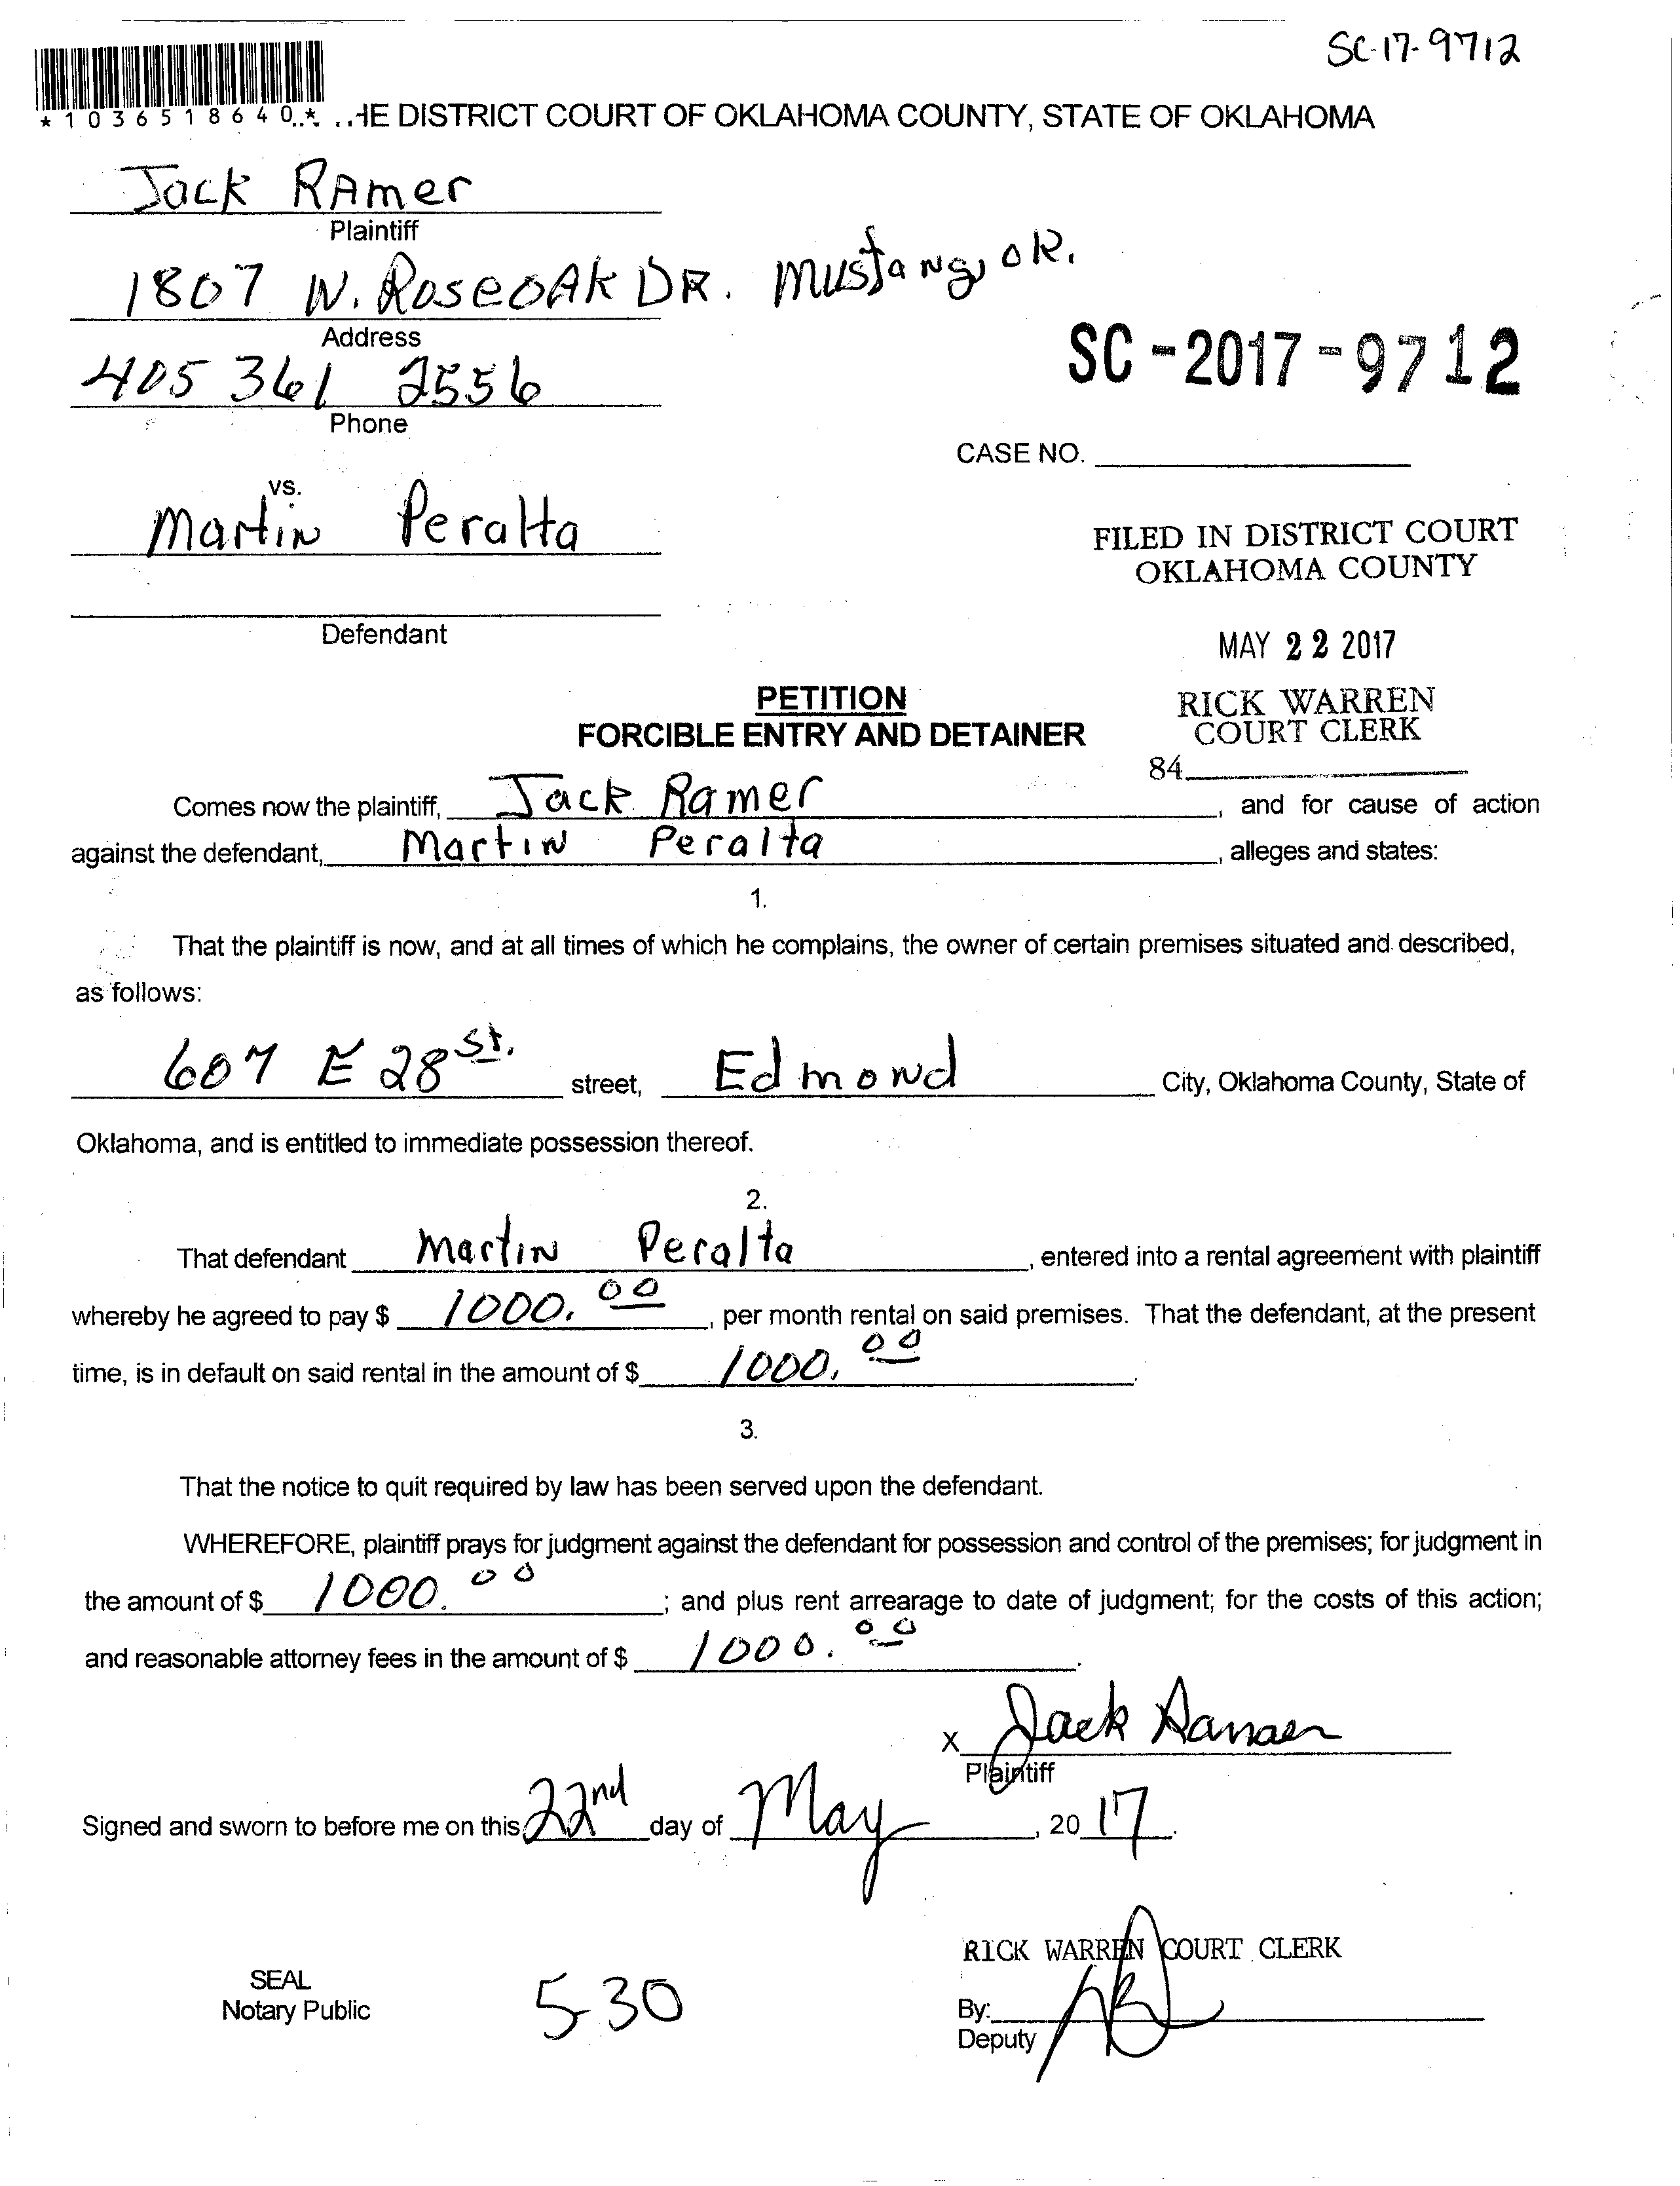 SC-17-9712
*1036518640*
HE DISTRICT COURT OF OKLAHOMA COUNTY, STATE OF OKLAHOMA
Jack RAmer
Plaintiff
1807 W. RoseOAk DR. Mustang, OK.
Address
405 361 2556
Phone
SC-2017-9712
CASE NO.
vs.
Martin Peralta
FILED IN DISTRICT COURT
OKLAHOMA COUNTY
Defendant
MAY 22 2017
PETITION
RICK WARREN
FORCIBLE ENTRY AND DETAINER
COURT CLERK
84
Comes now the plaintiff, Jack Ramer, and for cause of action
against the defendant, Martin Peralta, alleges and states:
1.
That the plaintiff is now, and at all times of which he complains, the owner of certain premises situated and described,
as follows:
607 E 28 St. street, Edmond City, Oklahoma County, State of
Oklahoma, and is entitled to immediate possession thereof.
2.
That defendant Martin Peralta, entered into a rental agreement with plaintiff
whereby he agreed to pay $ 1000.00, per month rental on said premises. That the defendant, at the present
time, is in default on said rental in the amount of $ 1000.00.
3.
That the notice to quit required by law has been served upon the defendant.
WHEREFORE, plaintiff prays for judgment against the defendant for possession and control of the premises; for judgment in
the amount of $ 1000.00; and plus rent arrearage to date of judgment; for the costs of this action;
and reasonable attorney fees in the amount of $ 1000.00.
X Jack Ramer
Plaintiff
Signed and sworn to before me on this 22nd day of May, 2017.
RICK WARREN COURT CLERK
SEAL
Notary Public
5-30
By:
Deputy